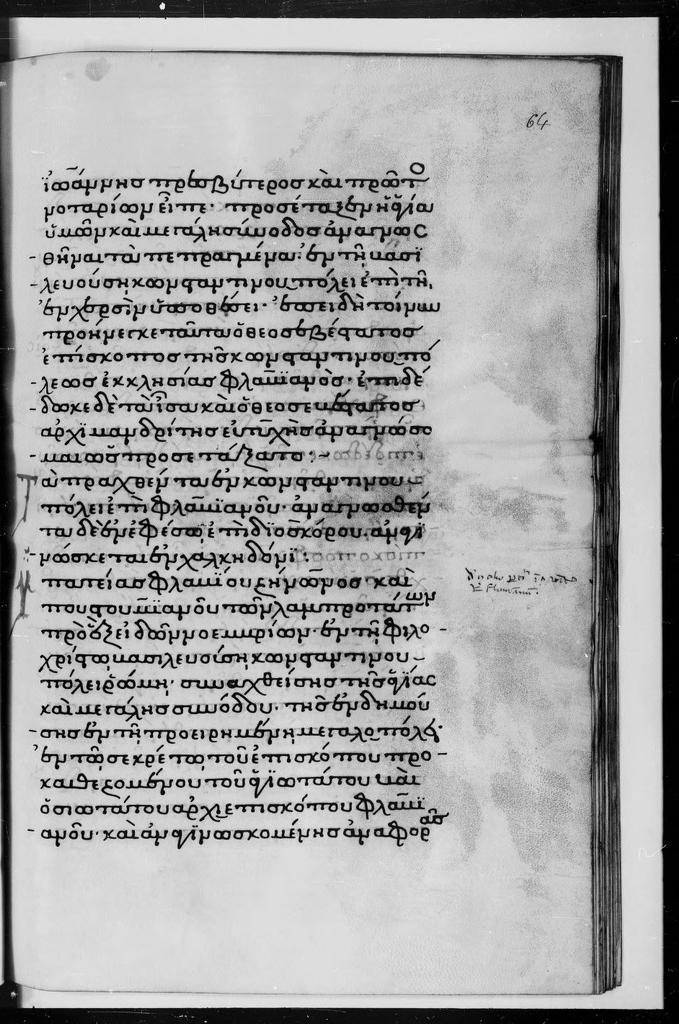 64
ἰωάννης πρεσβύτερος καὶ πρωτο
νοταρίων εἶπε· προσέταξεν ἡ ἁγία
ὑμῶν καὶ μεγάλη σύνοδος ἀναγνωσ
θῆναι τὰ πεπραγμένα· ἐν τῇ βασι
λευούσῃ κωνσταντινουπόλει ἐπὶ τῇ
ἐν χερσὶν ὑποθέσει· ἐπειδὴ τοίνυν
προήνεγκε ταῦτα ὁ θεοσεβέστατος
ἐπίσκοπος τῆς κωνσταντινουπό
λεως ἐκκλησίας φλαυϊανός· ἐπιδέ
δωκε δὲ τὰ ἴσα καὶ ὁ θεοσεβέστατος
ἀρχιμανδρίτης εὐτυχὴς ἀναγνωσο
μαι ὡς προσετάξατε :~
τὰ πραχθέντα ἐν κωνσταντινου
πόλει ἐπὶ φλαυϊανοῦ· ἀναγνωσθέν
τα δὲ ἐν ἐφέσῳ ἐπὶ διοσκόρου· ἀναγι
νώσκεται ἐν χαλκηδόνι :
ὑπατείας φλαυΐου ζήνωνος καὶ
ποστουμιανοῦ τῶν λαμπροτάτων
πρὸ ἓξ εἰδῶν νοεμβρίων· ἐν τῇ φιλο
χρίστῳ βασιλευούσῃ κωνσταντινου
πόλει ῥώμῃ· συναχθείσης τῆς ἁγίας
καὶ μεγάλης συνόδου· τῆς ἐνδημού
σης ἐν τῇ προειρημένῃ μεγαλοπόλει·
ἐν τῷ σεκρέτῳ τοῦ ἐπισκόπου προ
καθεζομένου τοῦ ἁγιωτάτου καὶ
ὁσιωτάτου ἀρχιεπισκόπου φλαυϊ
ανοῦ· καὶ ἀναγινωσκομένης ἀναφορᾶς